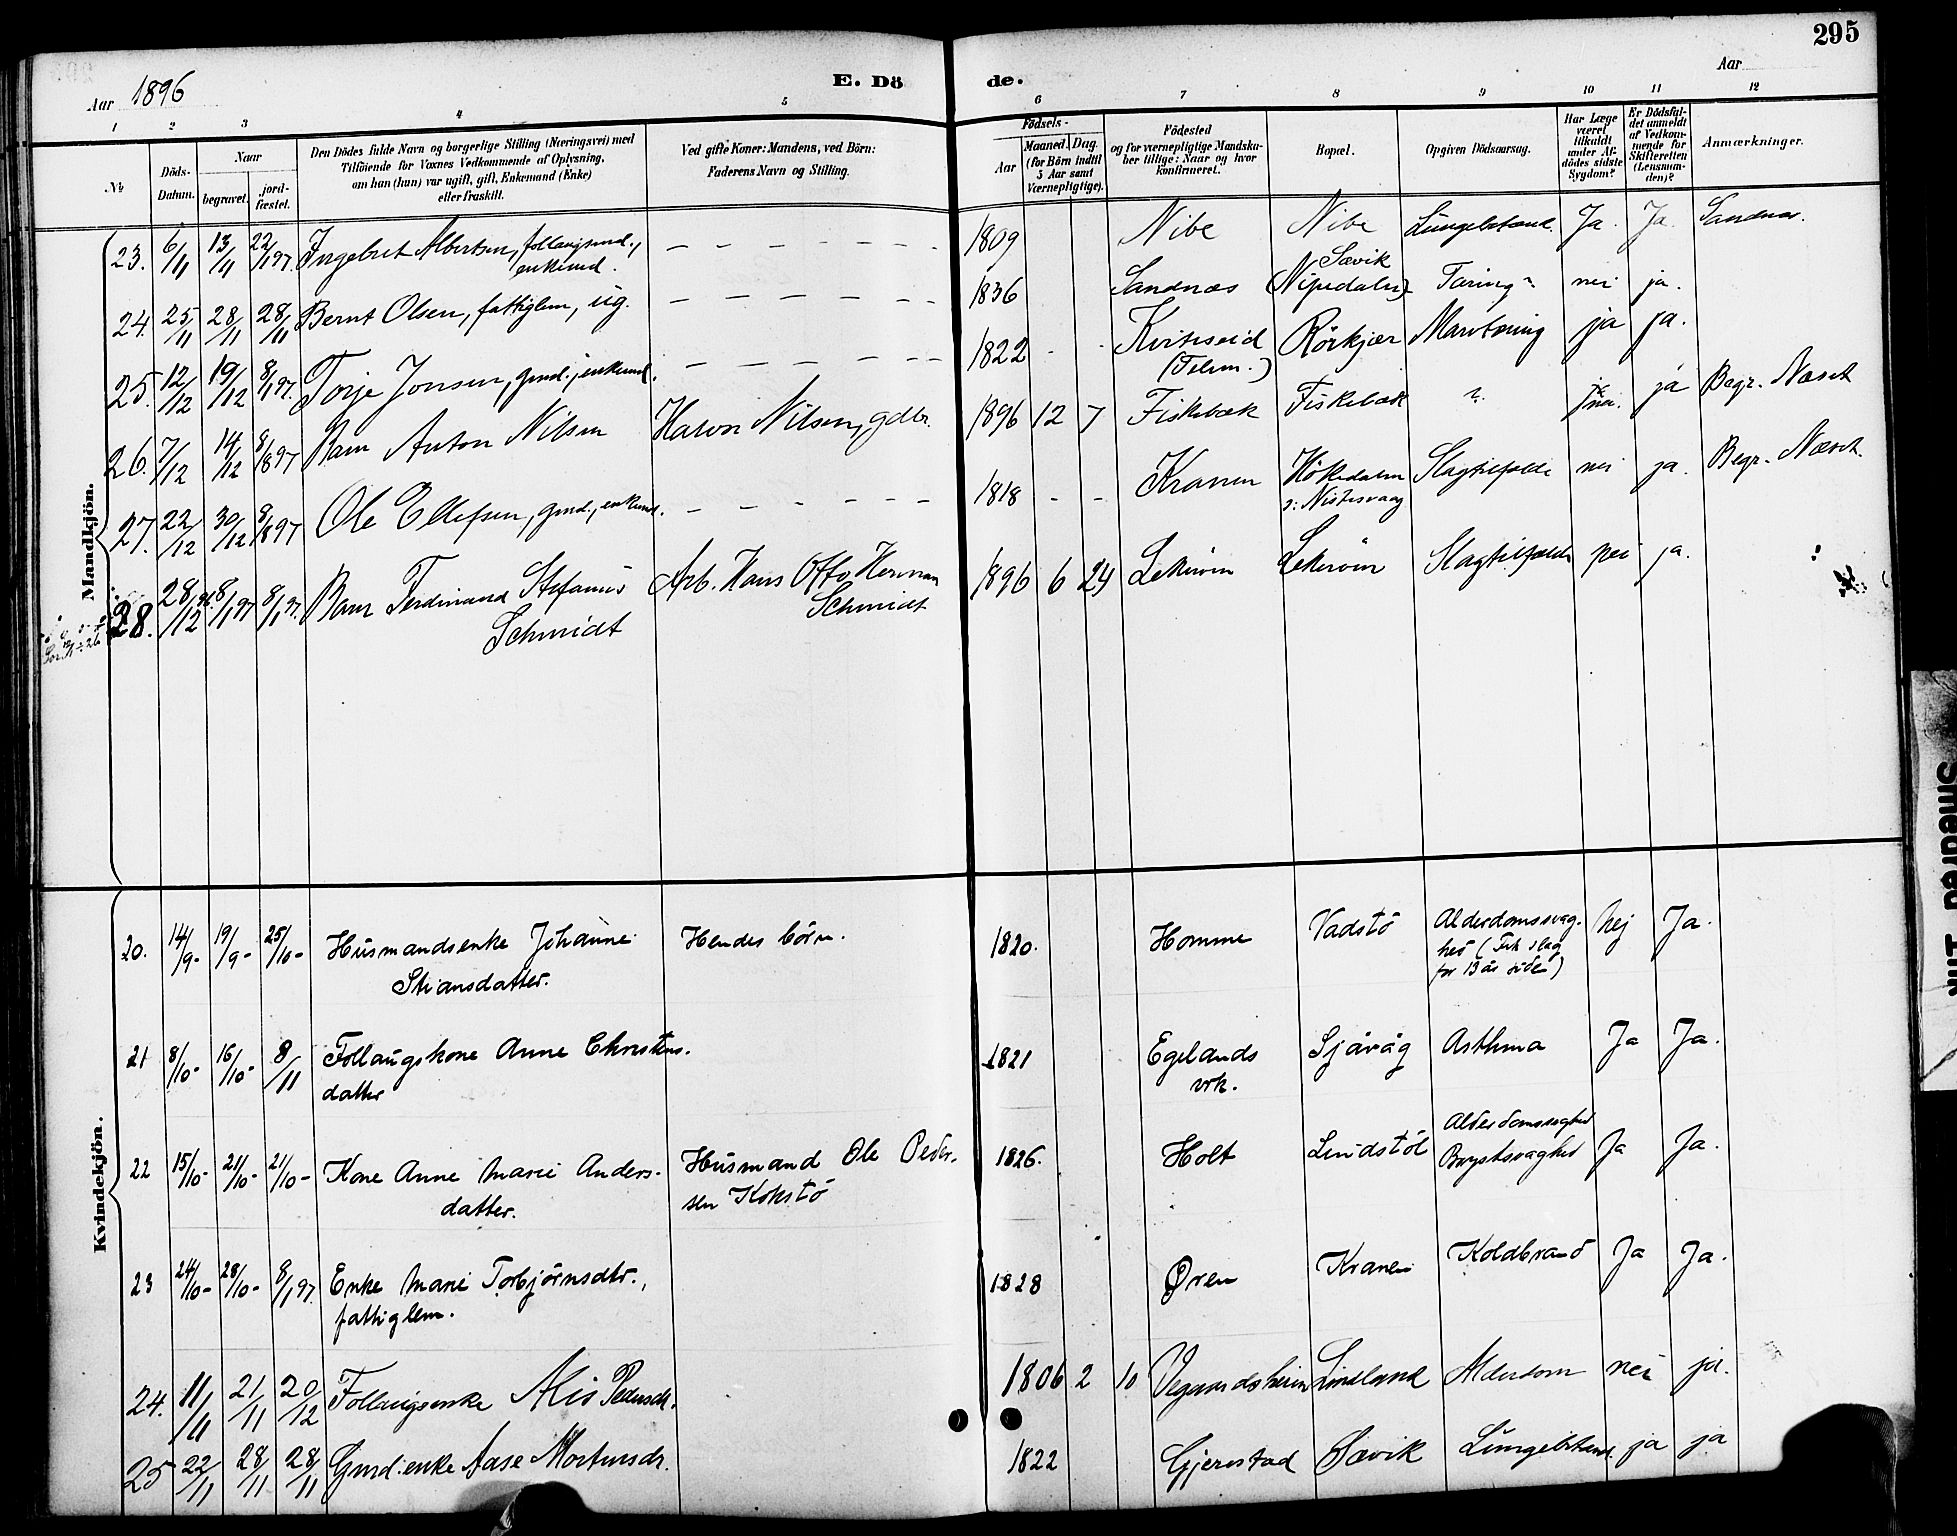 295
Aar 1896
E. Dö de.
Aar
1 2 3 4 5 6 7 8 9 10 11 12
№
Döds-Datum.
Naar
begravet.
jord-fæstet.
Den Dödes fulde Navn og borgerlige Stilling (Næringsvei) med
Tilföiende for Voxnes Vedkommende af Oplysning,
om han (hun) var ugift, gift, Enkemand (Enke)
eller fraskilt.
Ved gifte Koner: Mandens, ved Börn:
Faderens Navn og Stilling.
Födsels-
Aar
Maaned. Dag
(for Börn indtil
5 Aar samt
Værnepligtige).
Födested
og for værnepligtige Mandska-
ber tillige: Naar og hvor
konfirmeret.
Bopæl.
Opgiven Dödsaarsag.
Har Læge
været
tilkaldt
under Af-
dödes sidste
Sygdom?
Er Dödsfal-
det anmeldt
af Vedkom-
mende for
Skifteretten
(Lensman-
den)?
Anmærkninger.
Mandkjön.
23. 6/11 13/11 22/1 97. Ingebret Albertsen, follaugsmd., enkemd. – – – – – – – 1809 Nibe Nibe Lungebetænd. Ja. Ja. Sandnæs.
24. 25/11 28/11 28/11 Bernt Olsen, fattiglem, ug. – – – – – – – 1836 Sandnæs Sævik (Nipedalen) Tæring? nei ja.
25. 12/12 19/12 8/1 97. Torje Jonsen, gmd., enkemd. – – – – – – 1822 - - Kviteseid (Telem.) Rörkjær Mavetæring ja ja.
26. 7/12 14/12 8/8 97 Barn Anton Nilsen Halvor Nilsen, gdbr. 1896 12 7 Fiskebæk Fiskebæk ? ja Begr. Næset
27. 22/12 30/12 8/8 97 Ole Ellefsen, gmd., enkemd. – – – – – – 1818 - - Kranen Hökedalen o: Nistesvaag Slagtilfælde nei ja. Begr. Næset.
28. 28/12 96. 8/1 97 8/1 97. Barn Ferdinand Stefanus Schmidt Arb. Hans Otto Herman Schmidt 1896 6 24 Lekeröen Lekeröen Slagtilfælde nei ja.
Kvindekjön.
20. 14/9- 19/9- 25/10- Husmandsenke Johanne Stiansdatter. Hendes börn. 1820. Homme Vadstö Alderdomssvag-hed (Fik slag for 13 år siden) Nej Ja.
21 8/10- 16/10- 8/11 Follaugskone Anne Christens-datter 1821 Egelands vrk. Sjåvåg Asthma Ja Ja.
22 15/10- 21/10- 21/10- Kone Anne Marie Anders-datter. Husmand Ole Peder-sen Kokstö 1826. Holt Lindstöl Alderdomssvaghed Brystsvaghed Ja Ja.
23 24/10- 28/10- 8/1 97. Enke Marie Torbjörnsdtr., fattiglem. 1828 Øren Kranen Koldbrand Ja Ja.
24. 11/11 21/11 20/12 Follaugsenke Alis Pedersdr. 1806 2 10 Vegaardsheien Lindland Alderdom nei ja.
25 22/11 28/11 28/11 Gmd.enke Aase Mortensdr. 1822 Gjerrestad Sævik Lungebetænd. ja ja